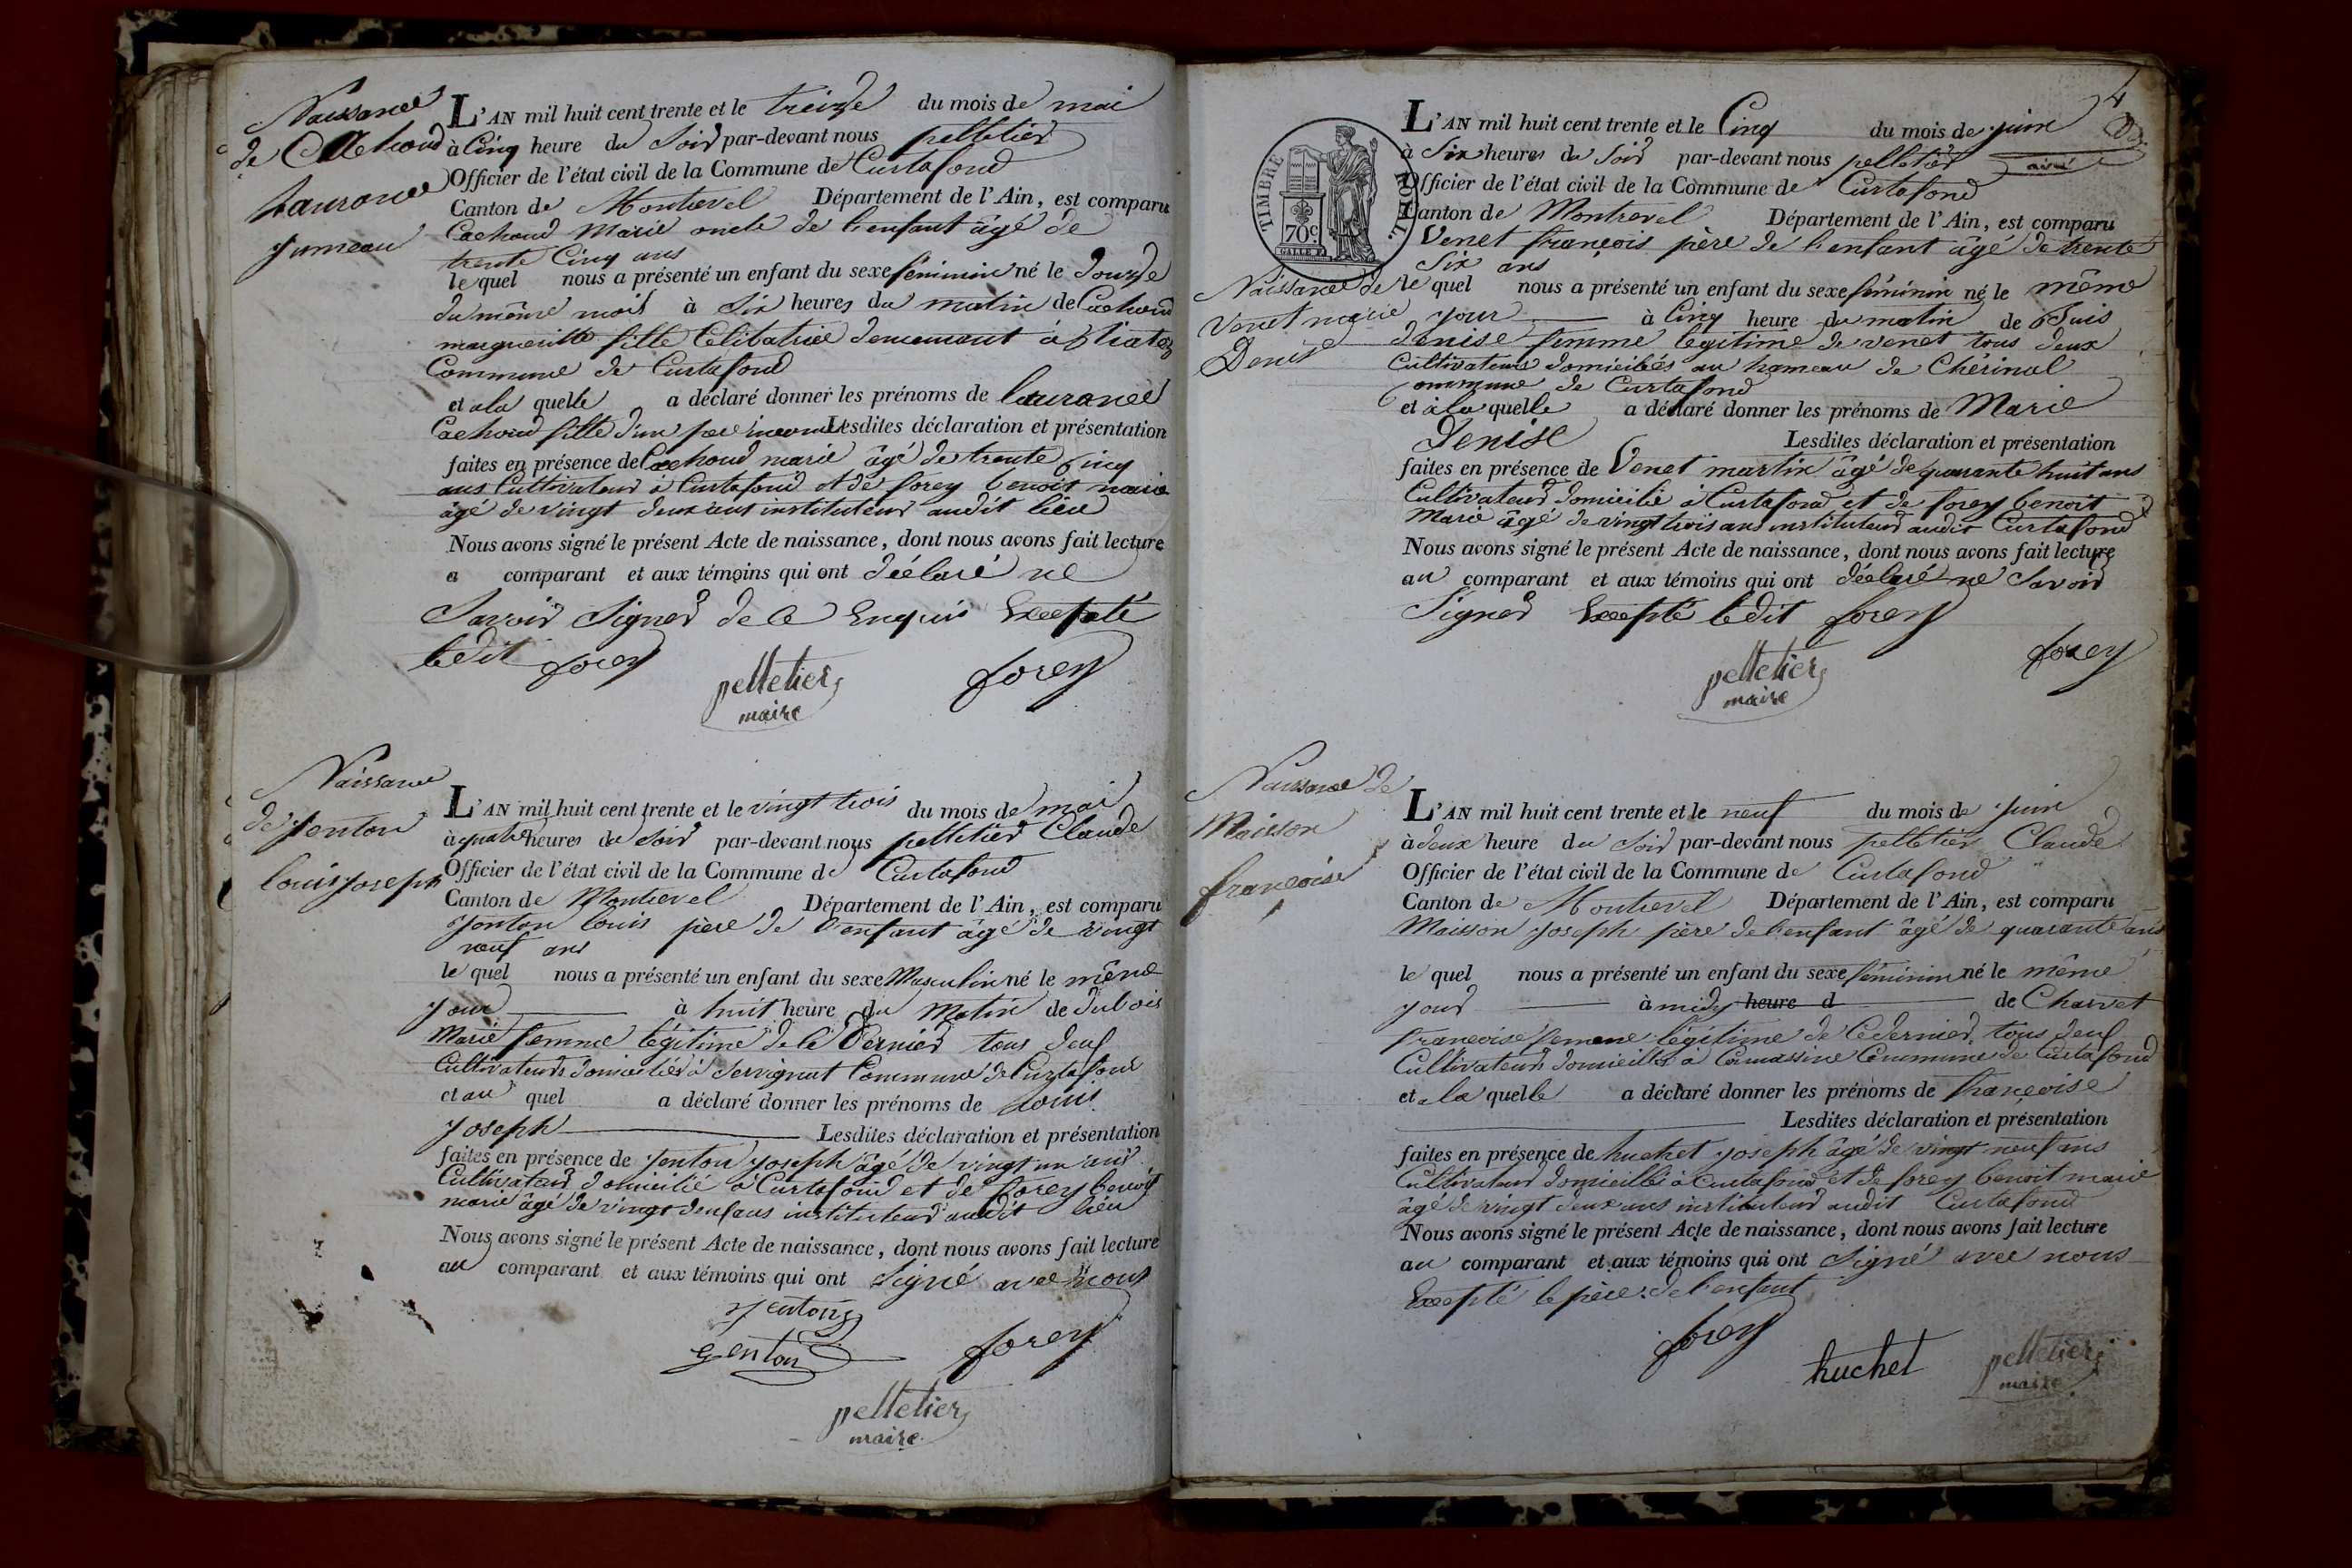 Naissance
de Cachoud
Laurance
Jumeau
L'AN mil huit cent trente et le treize du mois de mai
à Cinq heure du Soir par-devant nous pelletier
Officier de l'état civil de la Commune de Curtafond
Canton de Montrevel Département de l'Ain, est comparu
Cachoud Marie oncle de l'enfant âgé de
trente Cinq ans
le quel nous a présenté un enfant du sexe féminin né le douze
du même mois à Six heures du matin de Cachoud
marguerite fille Célibatrice demeurant à
Commune de Curtafond
et a la quelle a déclaré donner les prénoms de laurance
Cachoud fille d'un père inconnu Lesdites déclaration et présentation
faites en présence de Cachoud marie âgé de trente Cinq
ans Cultivateur à Curtafond et de forey benoit marie
âgé de vingt deux ans instituteur audit lieu
Nous avons signé le présent Acte de naissance, dont nous avons fait lecture
a comparant et aux témoins qui ont déclaré ne
Savoir Signer de ce Enquis Excepté
ledit forey
pelletier
maire
forey
Naissance
de Jenton
louis joseph
L'AN mil huit cent trente et le vingt trois du mois de mai
à quatre heures du Soir par-devant nous pelletier Claude
Officier de l'état civil de la Commune de Curtafond
Canton de Montrevel Département de l'Ain, est comparu
Jenton louis père de l'enfant âgé de vingt
neuf ans
le quel nous a présenté un enfant du sexe Masculin né le même
jour à huit heure du Matin de dubois
Marie femme légitime de ce dernier tous deux
Cultivateurs domiciliés à Servignat Commune de Curtafond
et au quel a déclaré donner les prénoms de Louis
Joseph Lesdites déclaration et présentation
faites en présence de Jenton joseph âgé de vingt un ans
Cultivateur domicilié à Curtafond et de forey benoit
marie âgé de vingt deux ans instituteur audit lieu
Nous avons signé le présent Acte de naissance, dont nous avons fait lecture
au comparant et aux témoins qui ont Signé avec nous
Jenton
genton
forey
pelletier
maire
4
TIMBRE ROYAL
70c
Naissance de
Venet marie
Denise
L'AN mil huit cent trente et le Cinq du mois de juin
à Six heures du Soir par-devant nous pelletier
Officier de l'état civil de la Commune de Curtafond
Canton de Montrevel Département de l'Ain, est comparu
Venet françois père de l'enfant âgé de trente
Six ans
le quel nous a présenté un enfant du sexe féminin né le même
jour à Cinq heure du matin de
denise femme légitime de venet tous deux
Cultivateurs domiciliés au hameau de Chérinal
Commune de Curtafond
et à la quelle a déclaré donner les prénoms de Marie
Denise Lesdites déclaration et présentation
faites en présence de Venet martin âgé de quarante huit ans
Cultivateur domicilié à Curtafond et de forey benoit
Marie âgé de vingt trois ans instituteur audit Curtafond
Nous avons signé le présent Acte de naissance, dont nous avons fait lecture
au comparant et aux témoins qui ont déclaré ne Savoir
Signer Excepté ledit forey
pelletier
maire
forey
Naissance de
Maisson
françoise
L'AN mil huit cent trente et le neuf du mois de Juin
à deux heure du Soir par-devant nous pelletier Claude
Officier de l'état civil de la Commune de Curtafond
Canton de Montrevel Département de l'Ain, est comparu
Maisson joseph père de l'enfant âgé de quarante ans
le quel nous a présenté un enfant du sexe féminin né le même
jour à midy heure d de Charvet
françoise femme légitime de ce dernier, tous deux
Cultivateurs domiciliés à Commune de Curtafond
et a la quelle a déclaré donner les prénoms de françoise
Lesdites déclaration et présentation
faites en présence de huchet joseph âgé de vingt neuf ans
Cultivateur domicilié à Curtafond et de forey benoit marie
âgé de vingt deux ans instituteur audit Curtafond
Nous avons signé le présent Acte de naissance, dont nous avons fait lecture
au comparant et aux témoins qui ont Signé avec nous
Excepté le père de l'enfant
forey
huchet
pelletier
maire